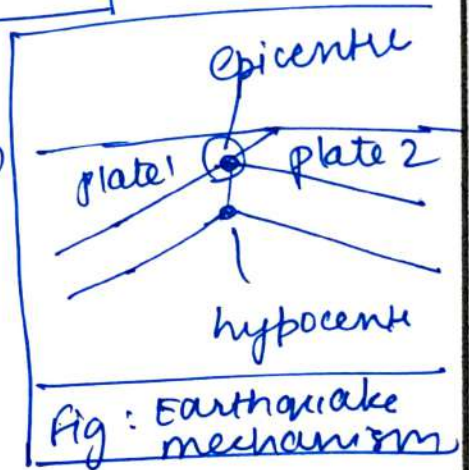 epicentre
plate1 plate 2
hypocentre
Fig : Earthquake
mechanism